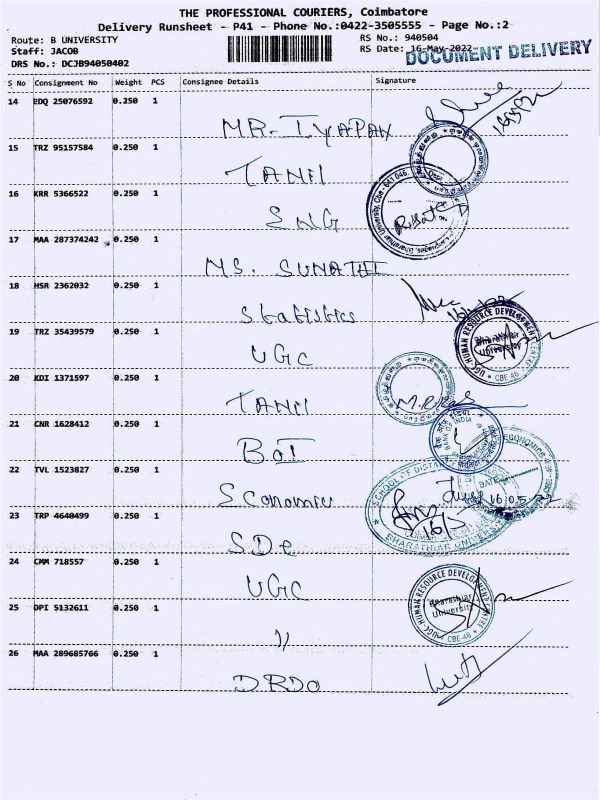 THE PROFESSIONAL COURIERS, Coimbatore
Delivery Runsheet - P41 - Phone No.:0422-3505555 - Page No.:2
Route: B UNIVERSITY
RS No.: 940504
Staff: JACOB
RS Date: 16-May-2022
DOCUMENT DELIVERY
DRS No.: DCJB94050402
S No Consignment No Weight PCS Consignee Details Signature
14 EDQ 25076592 0.250 1
MR. IYAPAN
15 TRZ 95157584 0.250 1
TAMIL
16 KRR 5366522 0.250 1
ENG
17 MAA 287374242 0.250 1
MS. SUMATHI
18 HSR 2362032 0.250 1
Statistics
19 TRZ 35439579 0.250 1
UGC
UGC-HUMAN RESOURCE DEVELOPMENT
Bharathiar
University
CBE-46
20 KDI 1371597 0.250 1
TAMIL
21 CNR 1628412 0.250 1
BOI
BANK OF INDIA
22 TVL 1523827 0.250 1
Economics
ECONOMICS
DATE
16.05.22
SCHOOL OF DISTAN
BHARATHIAR UNIVERSITY
16/5
23 TRP 4640499 0.250 1
SDE
24 CMM 718557 0.250 1
UGC
UGC-HUMAN RESOURCE DEVELOPMENT
Bharathiar
University
CBE-46
25 OPI 5132611 0.250 1
11
26 MAA 289685766 0.250 1
DRDO